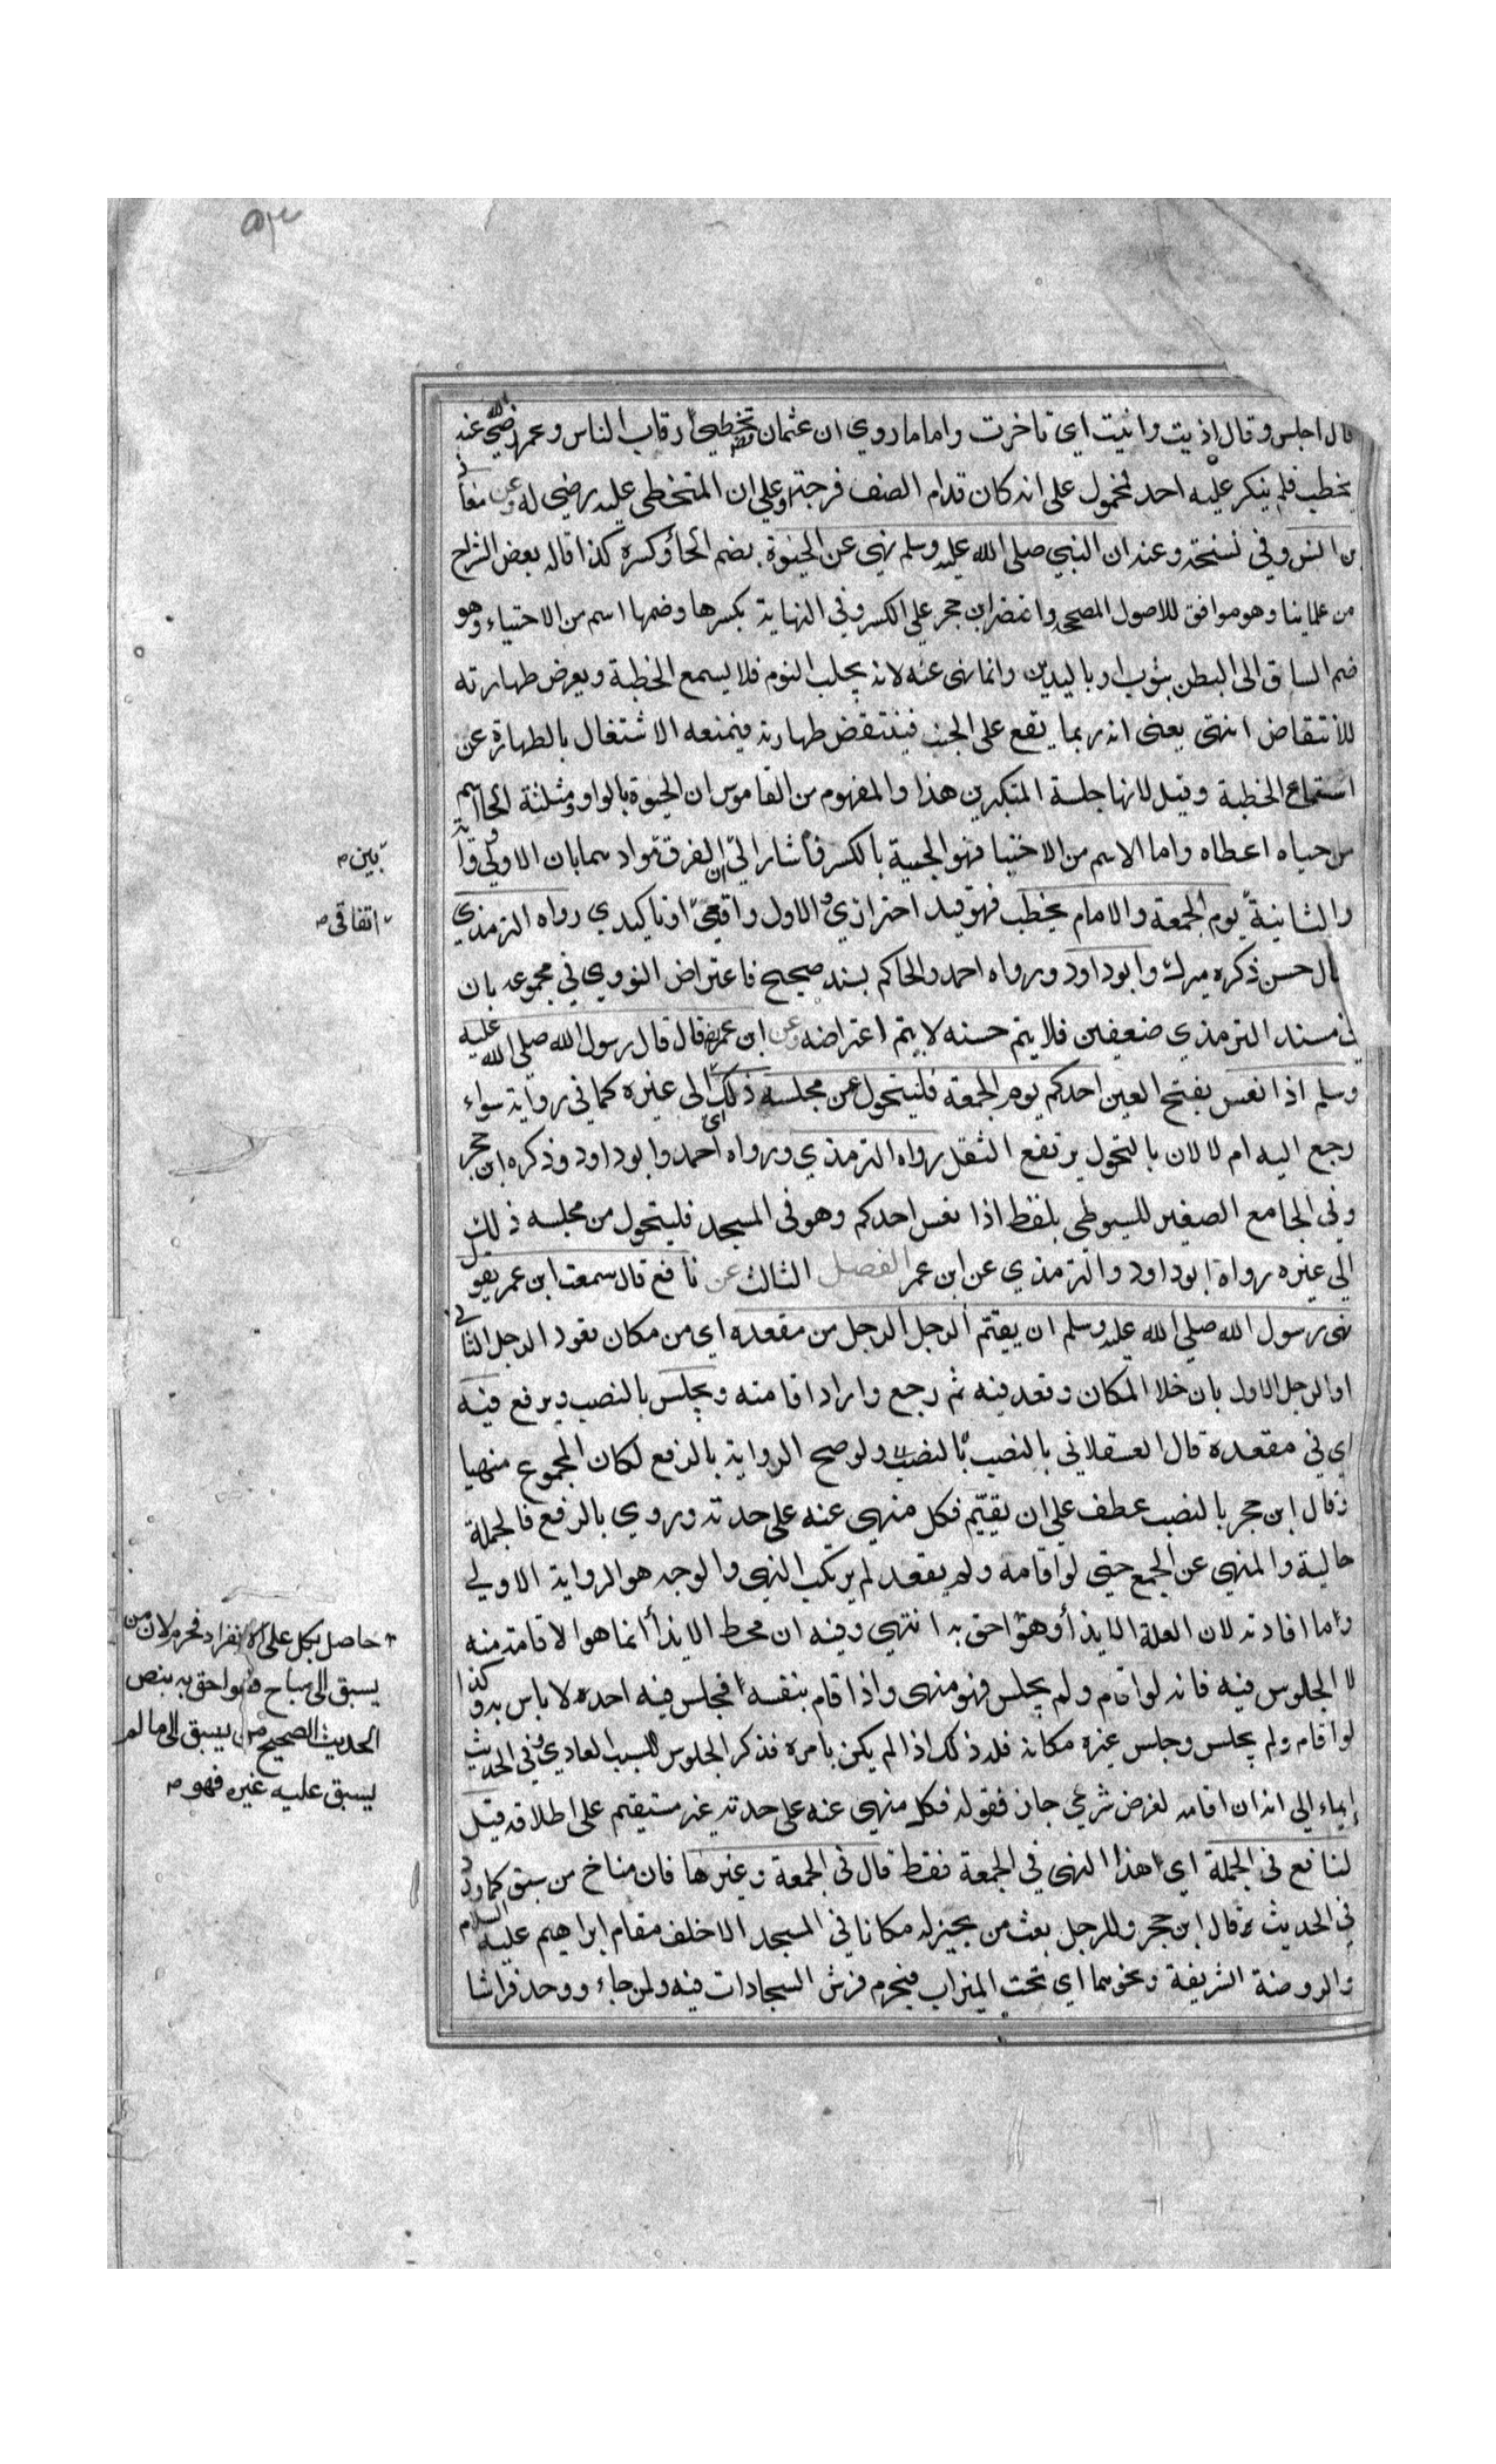 قال اجلس وقال اذيت وانيت اي تاخرت واما ما روي ان عثمان تخطى رقاب الناس وعمر رضي الله عنه
يخطب فلم ينكر عليه احد فمحمول على انه كان قدام الصف فرجة وعلى ان المتخطى عليه رضي له وعن معاذ
بن انس وفي نسخة وعنه ان النبي صلى الله عليه وسلم نهى عن الحبوة بضم الحاء وكسره كذا قاله بعض الشراح
من علماينا وهو موافق للاصول المصححة واقتصر ابن حجر على الكسر وفي النهاية بكسرها وضمها اسم من الاحتباء وهو
ضم الساق الى البطن بثوب او باليدين وانما نهى عنه لانه يجلب النوم فلا يسمع الخطبة ويعرض طهارته
للانتقاض انتهى يعني انه ربما يقع على الجنب فينتقض طهارته فيمنعه الاشتغال بالطهارة عن
استماع الخطبة وقيل لانها جلسة المتكبرين هذا والمفهوم من القاموس ان الحبوة بالواو ومثلثة الحا اسم
من حباه اعطاه واما الاسم من الاحتبا فهو الحبية بالكسر فاشار الى الفرق مواد هما بان الاولى واو
والثانية يوم الجمعة والامام يخطب فهو قيد احترازي والاول واقعي او تاكيدي رواه الترمذي
قال حسن ذكره ميرك وابو داود ورواه احمد والحاكم بسند صحيح فاعتراض النووي في مجموعه بان
في مسند الترمذي ضعيفين فلا يتم حسنه لا يتم اعتراضه وعن ابن عمر قال قال رسول الله صلى الله عليه
وسلم اذا نعس بفتح العين احدكم يوم الجمعة فليتحول عن مجلسه ذلك اي الى غيره كما في رواية سواء
رجع اليه ام لا لان بالتحول يرتفع الثقل رواه الترمذي ورواه احمد وابو داود وذكره ابن حجر
وفي الجامع الصغير للسيوطي بلفظ اذا نعس احدكم وهو في المسجد فليتحول من مجلسه ذلك
الى غيره رواه ابو داود والترمذي عن ابن عمر الفصل الثالث عن نافع قال سمعت ابن عمر يقول
نهى رسول الله صلى الله عليه وسلم ان يقيم الرجل الرجل من مقعده اي من مكان قعود الرجل الثاني
او الرجل الاول بان خلا المكان وقعد فيه ثم رجع واراد اقامته ويجلس بالنصب ويرفع فيه
اي في مقعده قال العسقلاني بالنصب ولو صح الرواية بالرفع لكان المجموع منهيا
وقال ابن حجر بالنصب عطف على ان يقيم فكل منهي عنه على حدته وروي بالرفع فالجملة
حالية والمنهي عن الجمع حتى لو اقامه ولم يقعد لم يرتكب النهي والوجه هو الرواية الاولى
وما افادته لان العلة الايذاء وهو احق به انتهى وفيه ان محط الايذاء انما هو الاقامة منه
لا الجلوس فيه فانه لو اقام ولم يجلس فهو منهي واذا قام بنفسه فجلس فيه احد لا باس به وكذا
لو اقام ولم يجلس وجلس غيره مكانه فله ذلك اذا لم يكن بامره فذكر الجلوس للسبب العادي وفي الحديث
ايماء الى انه ان اقامه لغرض شرعي جاز فقوله فكل منهي عنه على حدته غير مستقيم على اطلاقه قيل
لنافع في الجملة اي اهذا النهي في الجمعة فقط قال في الجمعة وغيرها فان مناخ من سبق كما ورد
في الحديث قال ابن حجر وللرجل بعث من يحيز له مكانا في المسجد الا خلف مقام ابراهيم عليه السلام
والروضة الشريفة ونحوهما اي تحت الميزاب فيحرم فرش السجادات فيه ولمن جاء ووجد فراشا
بين
اتفاقي
حاصل بكل على الانفراد فحرم لان من
يسبق الى مباح فهو احق به بنص
الحديث الصحيح من يسبق الى ما لم
يسبق عليه غيره فهو